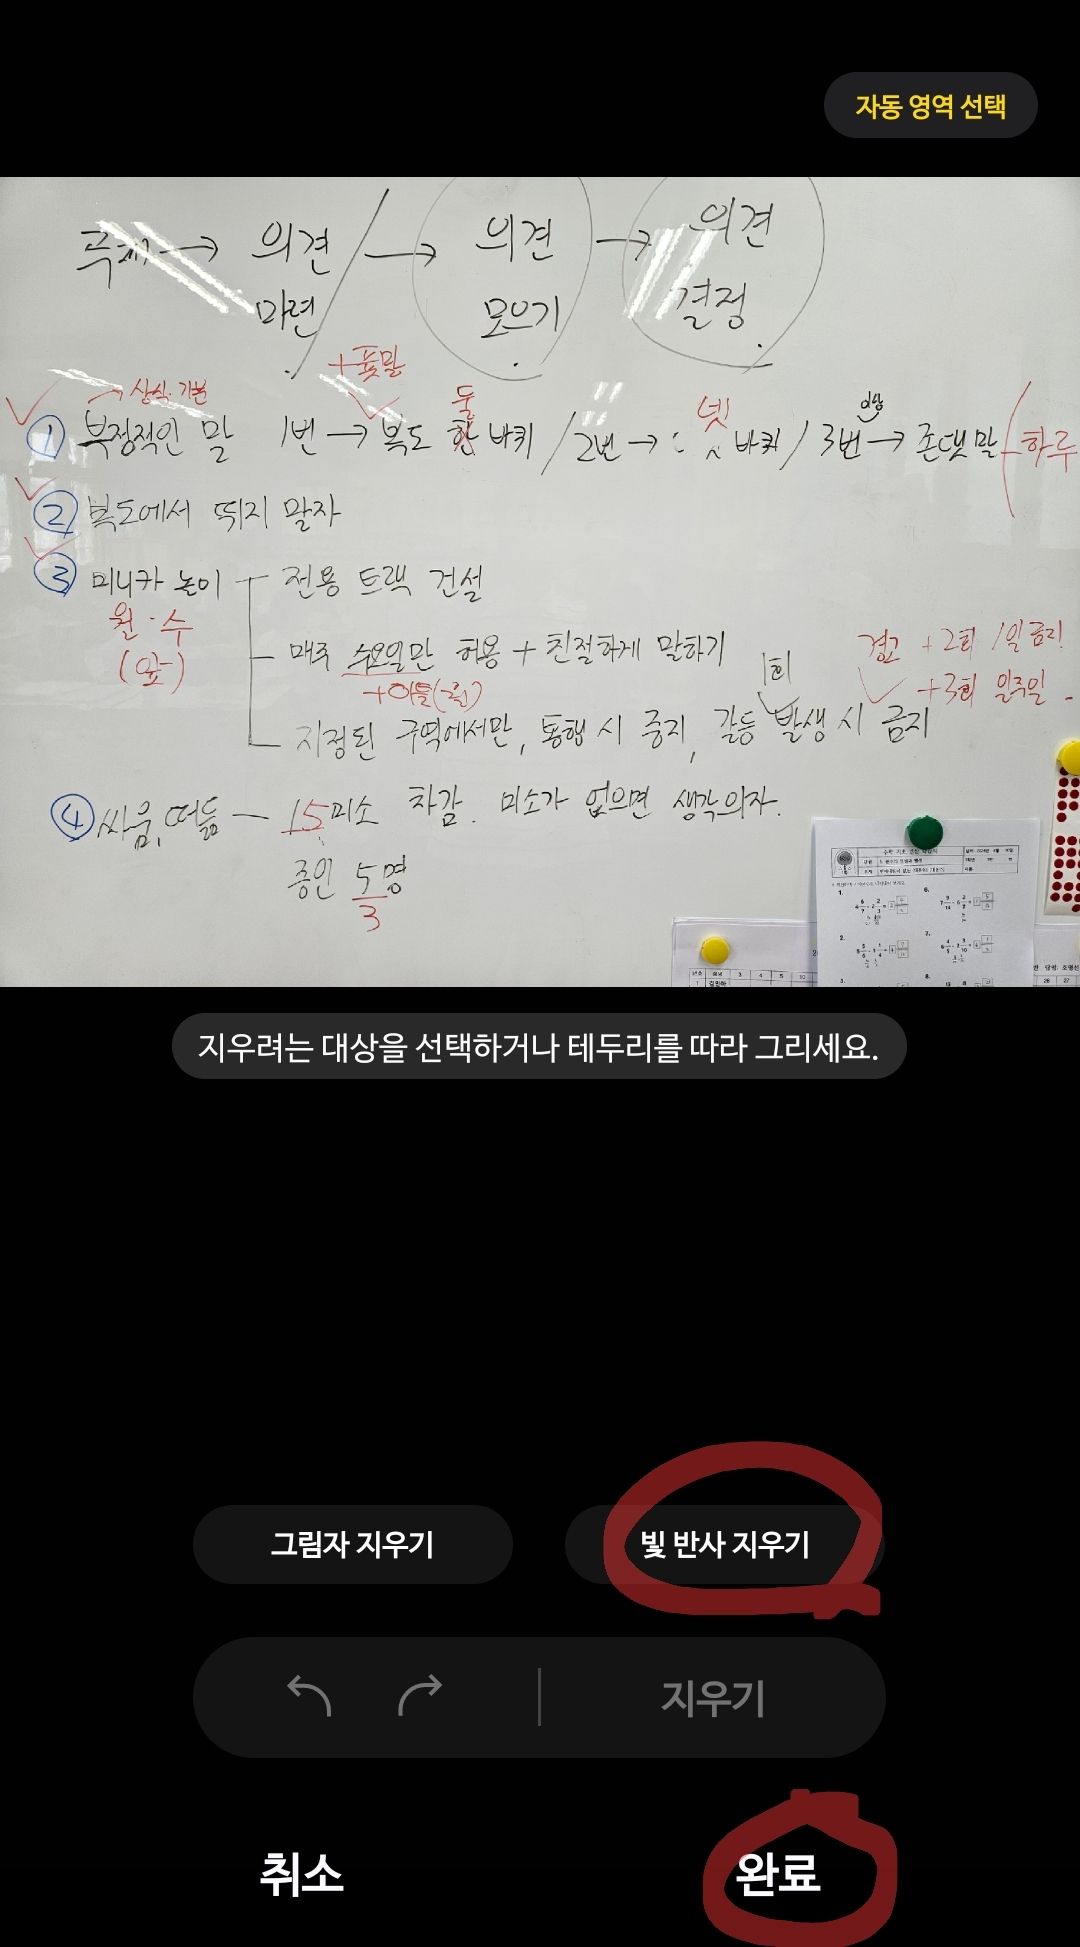 자동 영역 선택
주제 → 의견 → 의견 → 의견
마련 모으기 결정
→ 상식·기본 +푯말 둘 넷 이상
① 부정적인 말 1번 → 복도 한 바퀴 / 2번 → 바퀴 / 3번 → 존댓말 (하루
② 복도에서 뛰지 말자
③ 미니카 놀이 전용 트랙 건설
월·수
(앞)
매주 수요일만 허용 + 친절하게 말하기
+이틀(월)
1회
경고 +2회 1일 금지!
+3회 일주일
지정된 구역에서만, 통행 시 중지, 갈등 발생 시 금지
④ 싸움, 떠듦 — 15미소 차감. 미소가 없으면 생각의자.
증인 5명
3
지우려는 대상을 선택하거나 테두리를 따라 그리세요.
그림자 지우기
빛 반사 지우기
지우기
취소
완료